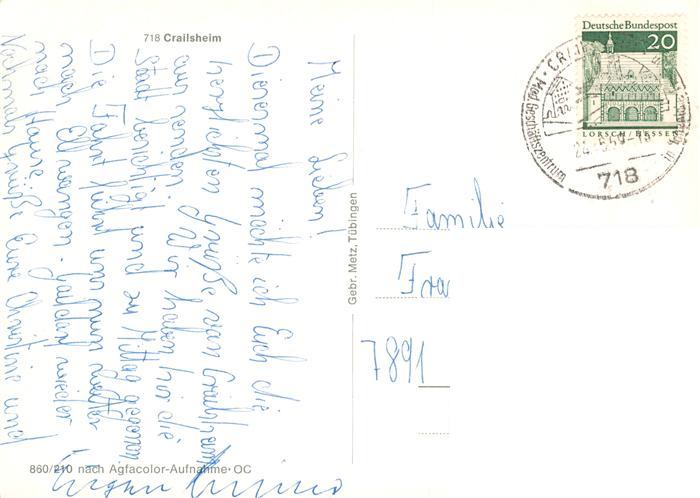 718 Crailsheim
Meine Lieben!
Diesmal möchte ich Euch die
herzlichsten Grüße von Crailsheim
aus senden. Wir haben hir die
Stadt besichtigt und zu Mittag gegessen.
Die Fahrt führt uns nun weiter
nach Ellwangen - Gaildorf wieder
nach Hause.
Nochmals Grüße Eure Christine und
Eugen
Deutsche Bundespost
20
LORSCH/HESSEN
718
Familie
Frau
7891
Gebr. Metz, Tübingen
860/210 nach Agfacolor-Aufnahme · OC